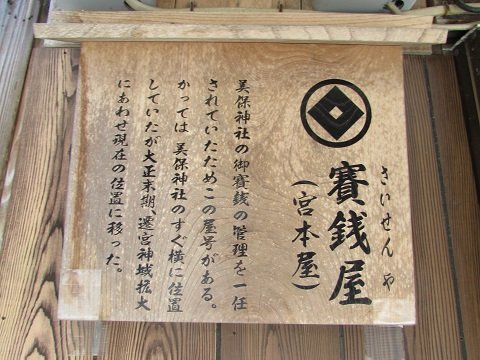 さいせんや
賽銭屋
(宮本屋)
美保神社の御賽銭の管理を一任
されていたためこの屋号がある。
かつては 美保神社のすぐ横に位置
していたが大正末期、遷宮神域拡大
にあわせ現在の位置に移った。